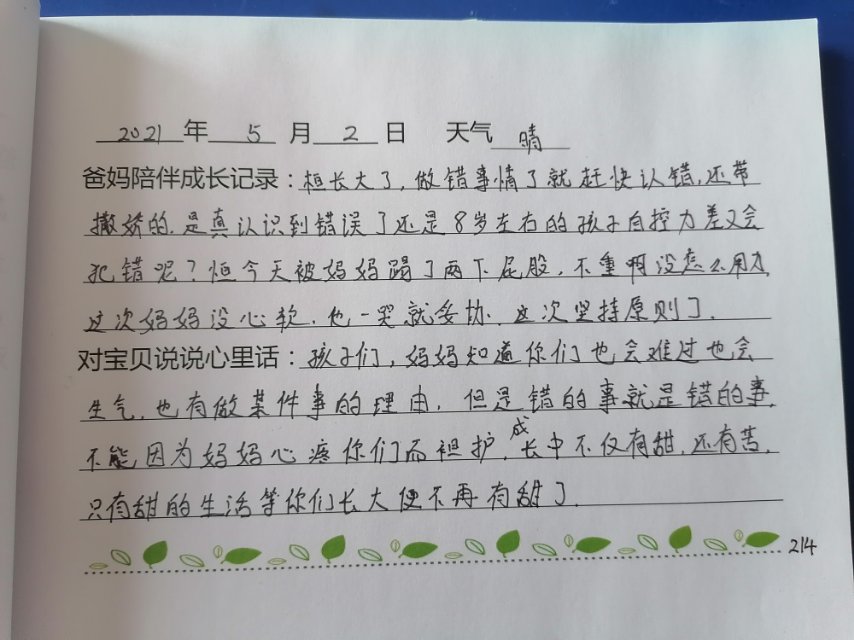 2021 年 5 月 2 日 天气 晴
爸妈陪伴成长记录：桓长大了，做错事情了就赶快认错，还带
撒娇的，是真认识到错误了还是8岁左右的孩子自控力差又会
犯错呢？恒今天被妈妈踢了两下屁股，不重啊没怎么用力，
过次妈妈没心软，他一哭就妥协，这次坚持原则了．
对宝贝说说心里话：孩子们，妈妈知道你们也会难过也会
生气，也有做某件事的理由，但是错的事就是错的事，
不能因为妈妈心疼你们而袒护，成长中不仅有甜，还有苦，
只有甜的生活等你们长大便不再有甜了．
214